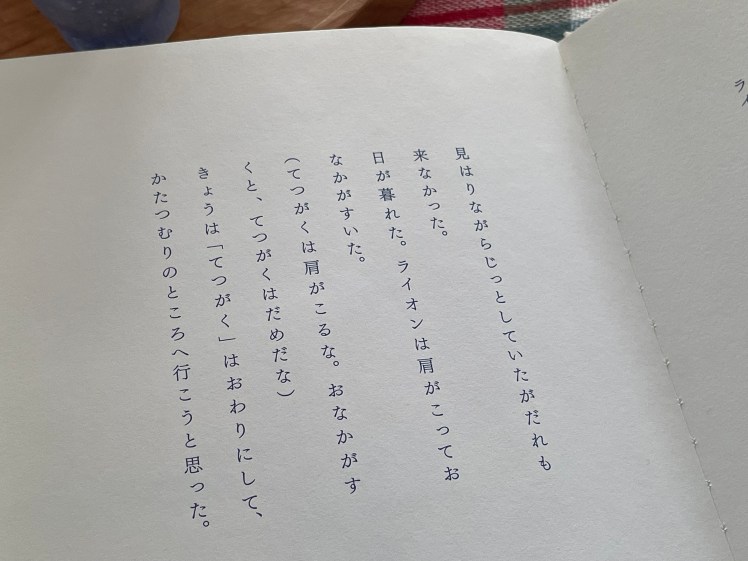 見はりながらじっとしていたがだれも
来なかった。
日が暮れた。ライオンは肩がこってお
なかがすいた。
(てつがくは肩がこるな。おなかがす
くと、てつがくはだめだな)
きょうは「てつがく」はおわりにして、
かたつむりのところへ行こうと思った。